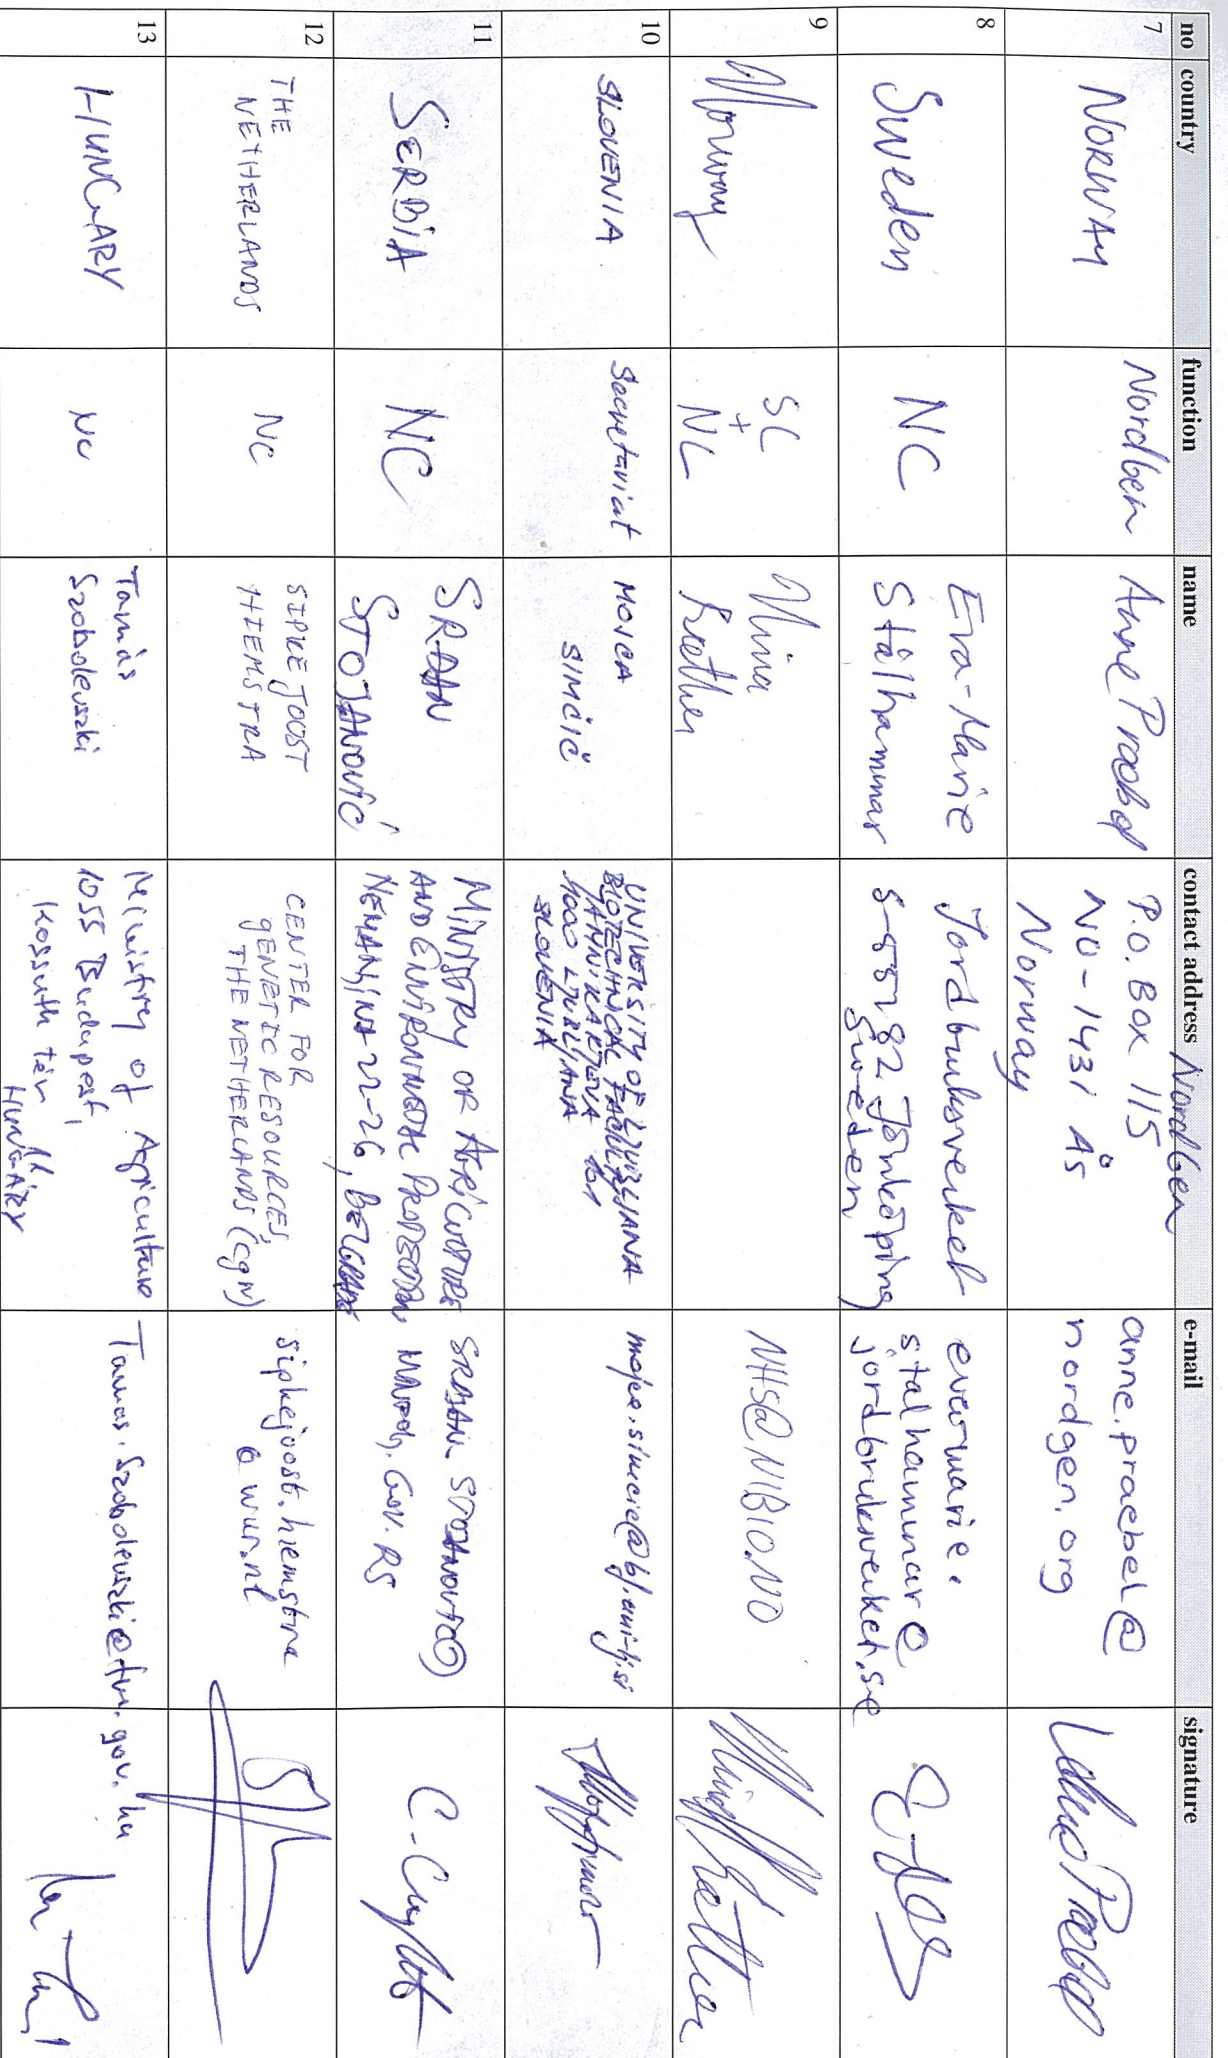 no country function name contact address e-mail signature
7 NORWAY NordGen Anne Præbel NordGen
P.O. Box 115
NO-1431 Ås
Norway
anne.praebel@
nordgen.org
8 Sweden NC Eva-Marie
Stålhammar
Jordbruksverket
S-551 82 Jönköping
Sweden
evamarie.
stalhammar@
jordbruksverket.se
9 Norway SC
+
NC
Nina
Sæther
NHS@NIBIO.NO
10 SLOVENIA Secretariat MOJCA
SIMČIČ
UNIVERSITY OF LJUBLJANA
BIOTECHNICAL FACULTY
JAMNIKARJEVA 101
1000 LJUBLJANA
SLOVENIA
mojca.simcic@bf.uni-lj.si
11 SERBIA NC SRĐAN
STOJANOVIĆ
MINISTRY OF AGRICULTURE
AND ENVIRONMENTAL PROTECTION
NEMANJINA 22-26, BELGRADE
12 THE
NETHERLANDS
NC
SIPKE JOOST
HIEMSTRA
CENTER FOR
GENETIC RESOURCES,
THE NETHERLANDS (CGN)
sipkejoost.hiemstra
@wur.nl
13 HUNGARY NC Tamás
Szobolevszki
Ministry of Agriculture
1055 Budapest,
Kossuth tér
HUNGARY
Tamas.Szobolevszki@fm.gov.hu